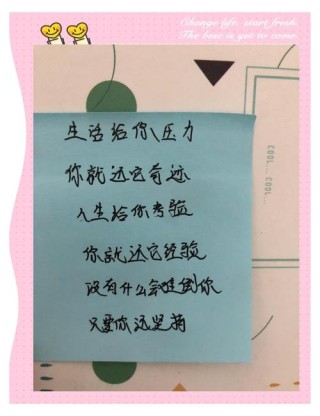 Change life, start fresh.
The best is yet to come.
生活给你压力
你就还它奇迹
人生给你考验
你就还它经验
没有什么会难倒你
只要你还坚持
COOL... COOL...